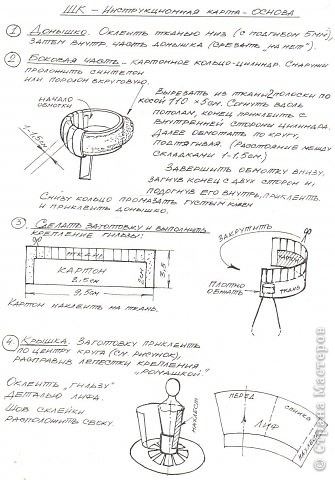 ШК – Инструкционная карта – основа
1 Донышко. Оклеить тканью низ (с подгибом 5мм),
затем внутр. часть донышка (срезать „на нет").
2 Боковая часть – картонное кольцо-цилиндр. Снаружи
проложить синтепон
или поролон вкруговую.
Начало
обмотки
1-1,5см
Вырезать из ткани 2 полоски по
косой 110 × 5см. Согнуть вдоль
пополам, конец приклеить с
внутренней стороны цилиндра.
Далее обмотать по кругу,
подтягивая. (Расстояние между
складками 1-1,5см)
Завершить обмотку внизу,
загнув конец с двух сторон и,
подогнув его внутрь, приклеить.
Снизу кольцо промазать густым клеем
и приклеить донышко.
3 Сделать заготовку и выполнить
крепление гильзы:
ткань
картон
8,5см
9,5см
2см
Картон наклеить на ткань.
Закрутить
картон
ткань
Плотно
обжать
4. Крышка. Заготовку приклеить
по центру круга (см. рисунок),
расправив лепестки крепления
„ромашкой".
Оклеить „гильзу"
деталью лифа.
Шов склейки
расположить сбоку.
нахлест
перед
спинка
лиф
нахлест
© Страна Мастеров